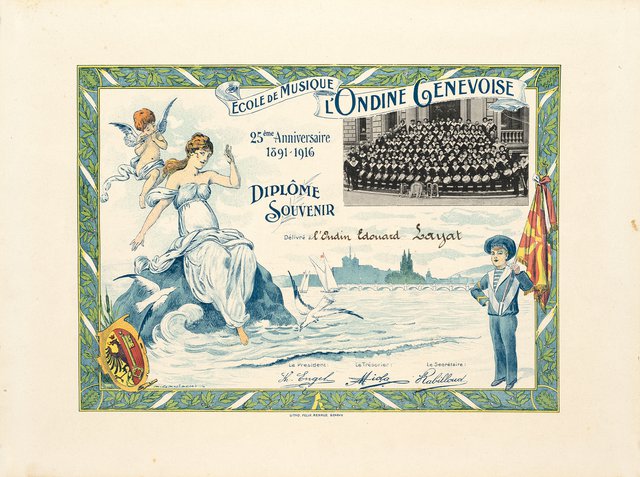 ECOLE DE MUSIQUE
L'ONDINE GENEVOISE
25ème Anniversaire
1891-1916
DIPLÔME
SOUVENIR
Délivré à l'Ondin Edouard Layat
Le Président:
Le Trésorier:
Le Secrétaire:
Ch. Engel
Miola
Rabilloud
LITHO. FELIX RENAUD. GENÈVE